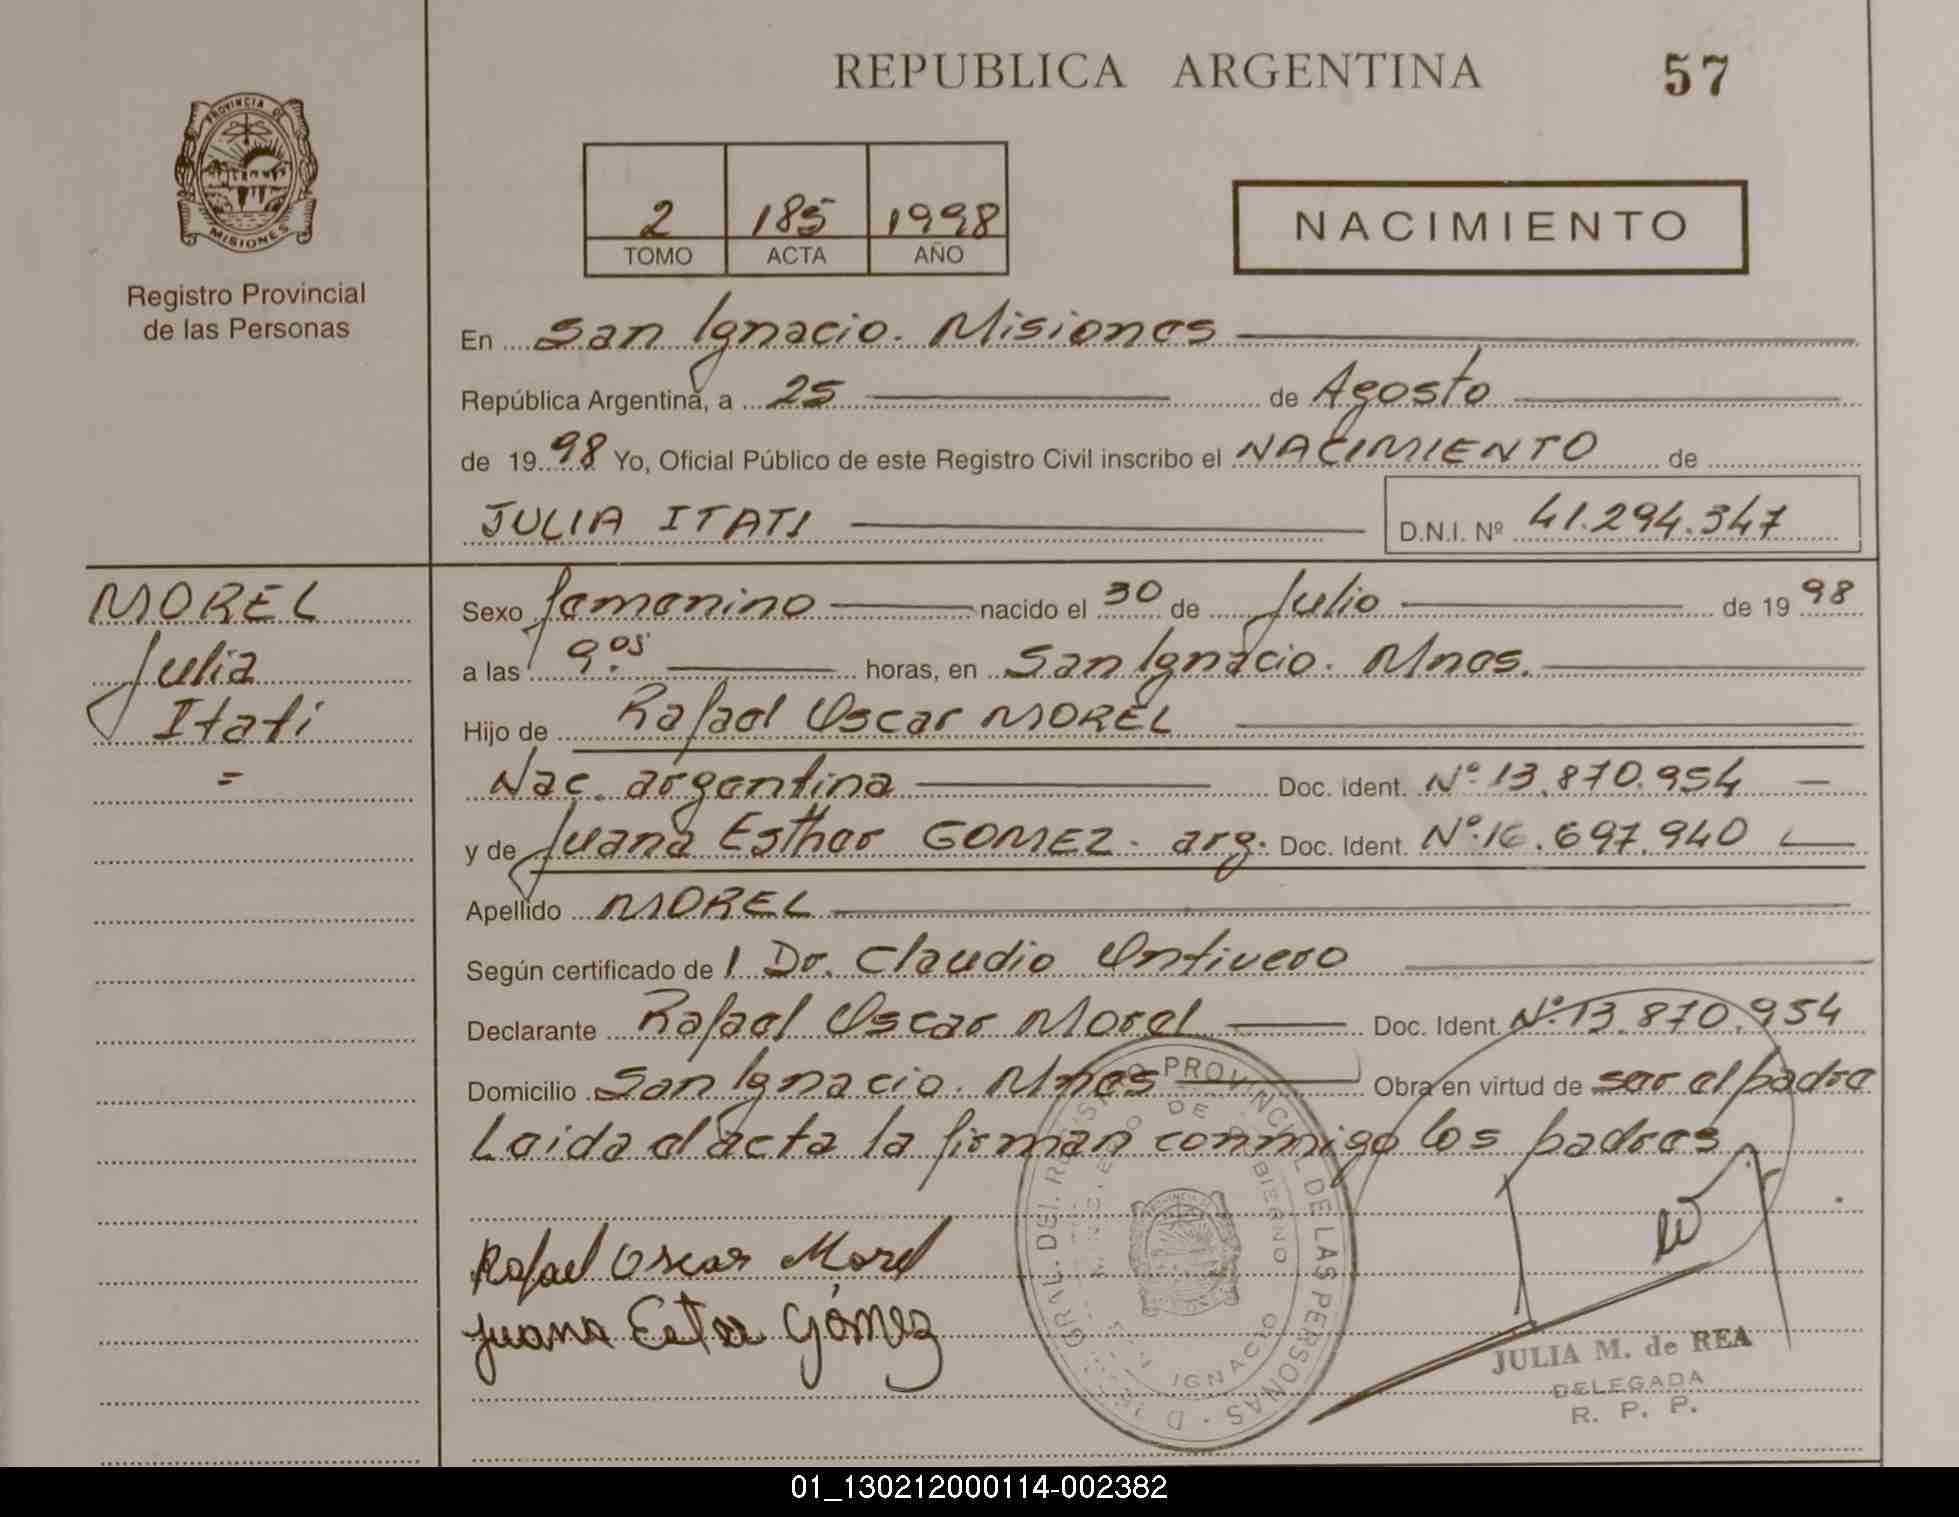 REPUBLICA ARGENTINA
57
PROVINCIA DE
MISIONES
Registro Provincial
de las Personas
2 185 1998
TOMO ACTA AÑO
NACIMIENTO
En San Ignacio. Misiones
República Argentina, a 25 de Agosto
de 1998 Yo, Oficial Público de este Registro Civil inscribo el NACIMIENTO de
JULIA ITATI D.N.I. Nº 41.294.347
MOREL
Julia
Itatí
=
Sexo femenino nacido el 30 de Julio de 1998
a las 9.05 horas, en San Ignacio. Mnes.
Hijo de Rafael Oscar MOREL
Nac. argentina Doc. Ident. Nº 13.870.954
y de Juana Esther GOMEZ - arg. Doc. Ident. Nº 16.697.940
Apellido MOREL
Según certificado de Dr. Claudio Ontivero
Declarante Rafael Oscar Morel Doc. Ident. Nº 13.870.954
Domicilio San Ignacio. Mnes Obra en virtud de ser el padre
Leida el acta la firman conmigo los padres
Rafael Oscar Morel
Juana Gómez
GRAL. DEL REGISTRO PROVINCIAL DE LAS PERSONAS
DE GOBIERNO
IGNACIO
JULIA M. de REA
DELEGADA
R. P. P.
01_130212000114-002382